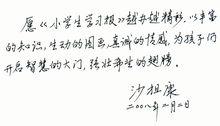 愿《小学生学习报》越办越精彩，以丰富
的知识，生动的图画，真诚的情感，为孩子们
开启智慧的大门，强壮翱翔的翅膀。
沙祖康
二〇〇八年二月二日